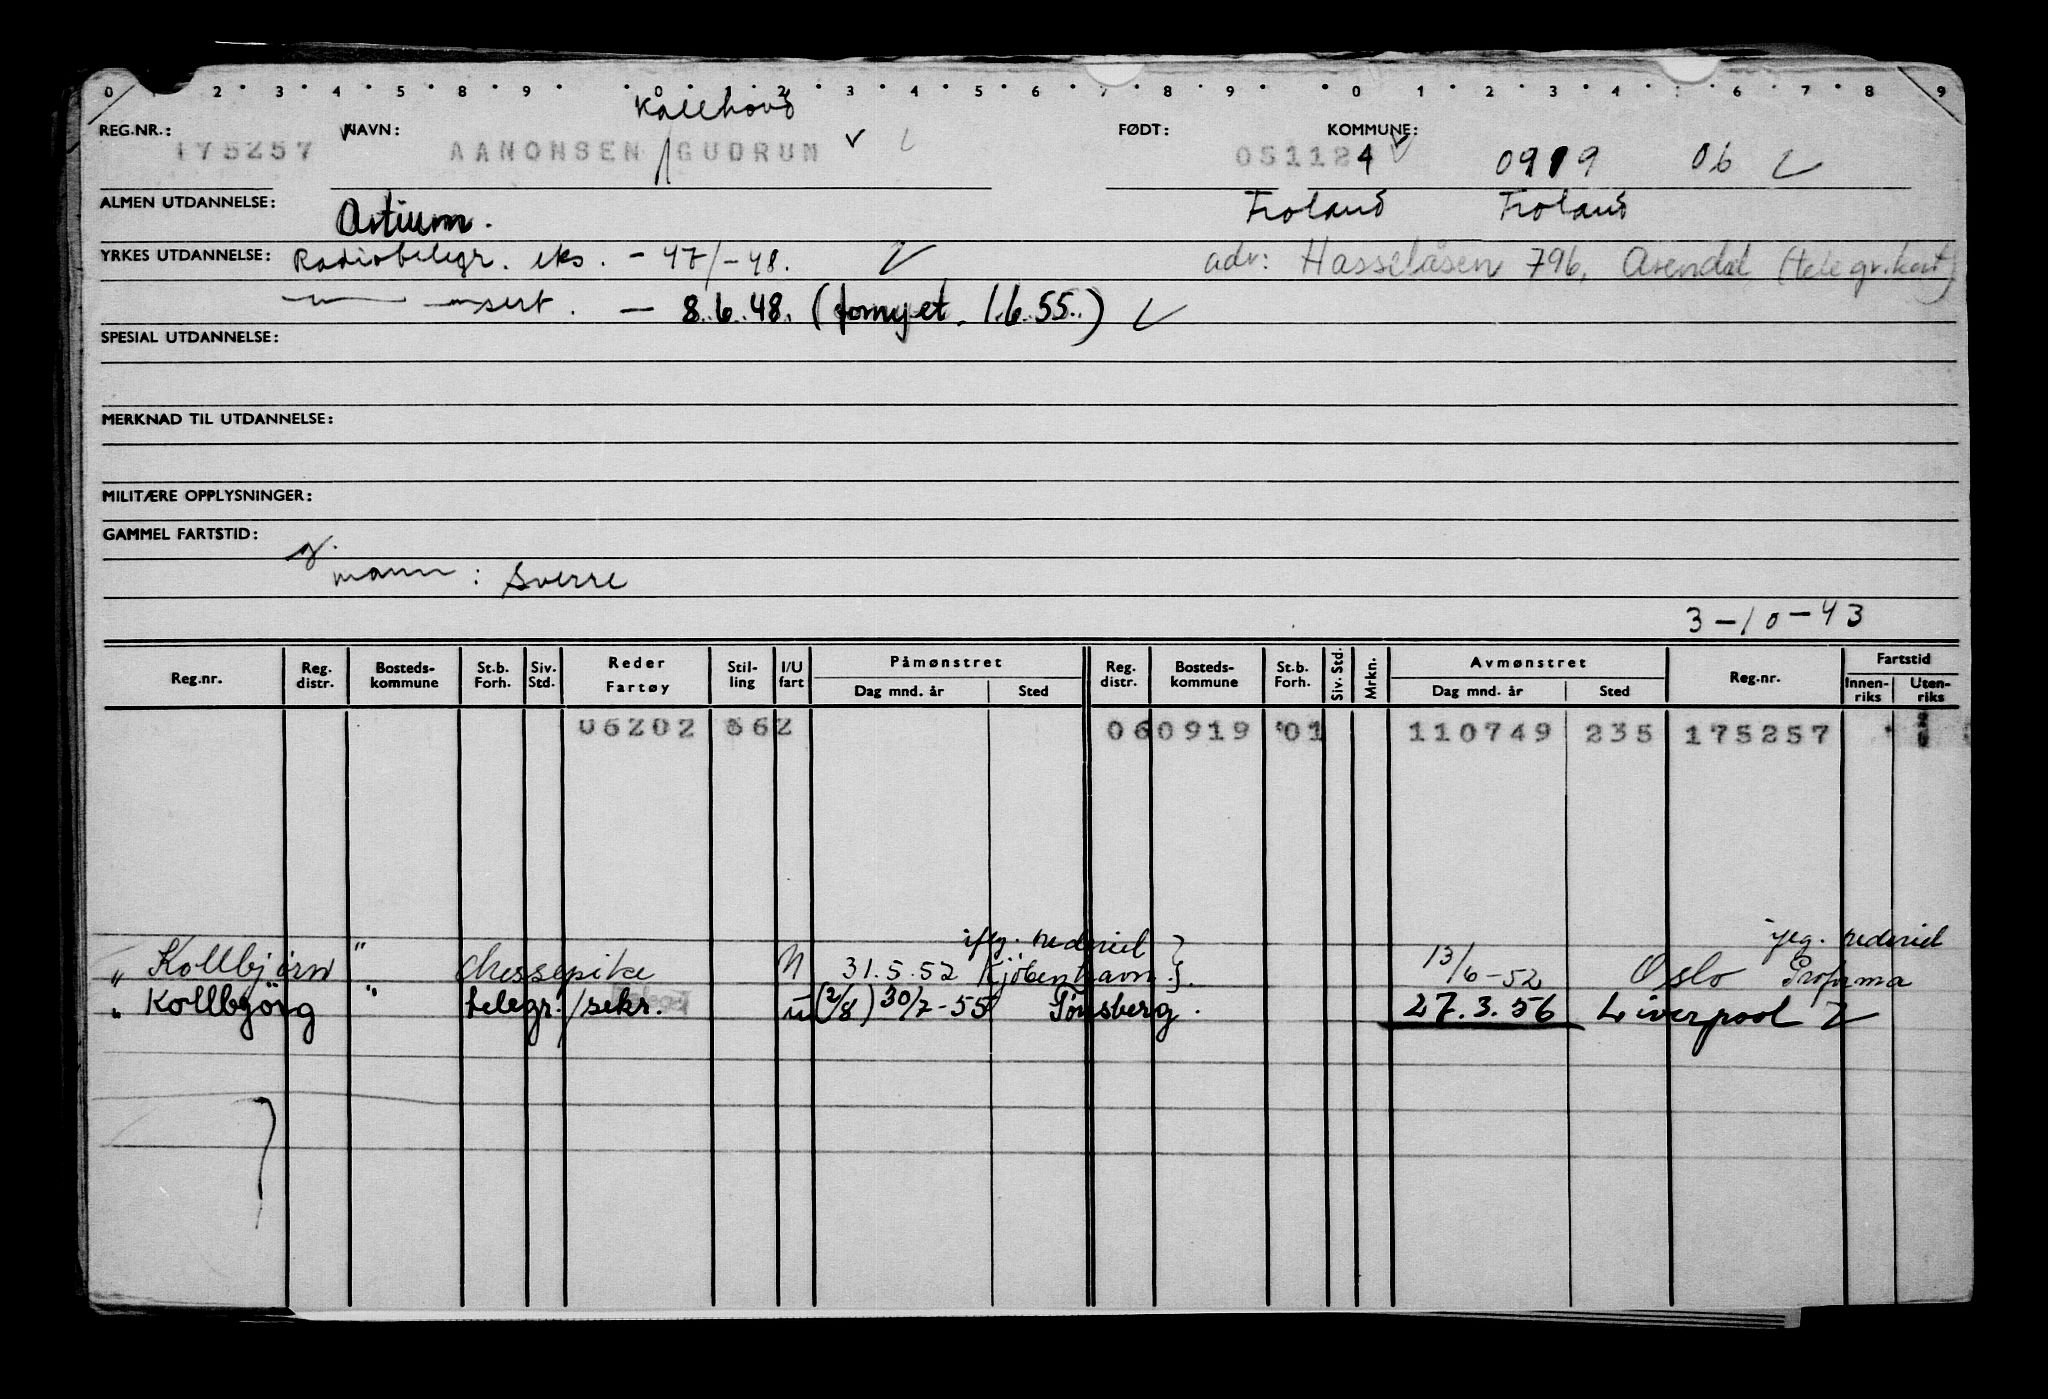 0 1 2 3 4 5 8 9 0 2 3 4 5 6 7 8 9 0 1 2 3 4 6 7 8 9
Kallhovd
REG.NR.: NAVN: FØDT: KOMMUNE:
175257 AANONSEN GUDRUN 051124 0919 06
ALMEN UTDANNELSE: Artium. Froland Froland
YRKES UTDANNELSE: Radiotelegr. eks. - 47/-48. adr: Hasselåsen 796, Arendal (telegr.kort)
—"— —"— sert. — 8.6.48. (fornyet. 1.6.55.)
SPESIAL UTDANNELSE:
MERKNAD TIL UTDANNELSE:
MILITÆRE OPPLYSNINGER:
GAMMEL FARTSTID:
g.
mann: Sverre
3-10-43
Reg.nr. Reg. distr. Bosteds- kommune St.b. Forh. Siv. Std. Reder Fartøy Stil- ling I/U fart Påmønstret Dag mnd. år Sted Reg. distr. Bosteds- kommune St.b. Forh. Siv. Std. Mrkn. Avmønstret Dag mnd. år Sted Reg.nr. Fartstid Innen- riks Uten- riks
06202 862 060919 01 110749 235 175257
iflg. rederiet } iflg. rederiet
" Kollbjørn " Messepike N 31.5.52 Kjøbenhavn. } 13/6-52 Oslo Proforma
" Kollbjørg " telegr./sekr. u (2/8) 30/7-55 Tønsberg. 27.3.56 Liverpool